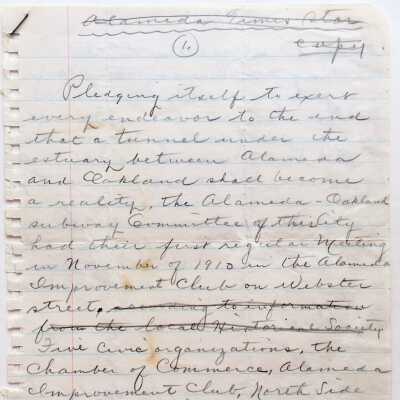 Alameda Times Star
copy
1.
Pledging itself to exert
every endeavor to the end
that a tunnel under the
estuary between Alameda
and Oakland shall become
a reality, the Alameda-Oakland
subway Committee of this City
had their first regular Meeting
in November of 1910 in the Alameda
Improvement Club on Webster
street, according to information
from the local Historical Society
Five Civic organizations, the
Chamber of Commerce, Alameda
Improvement Club, North Side